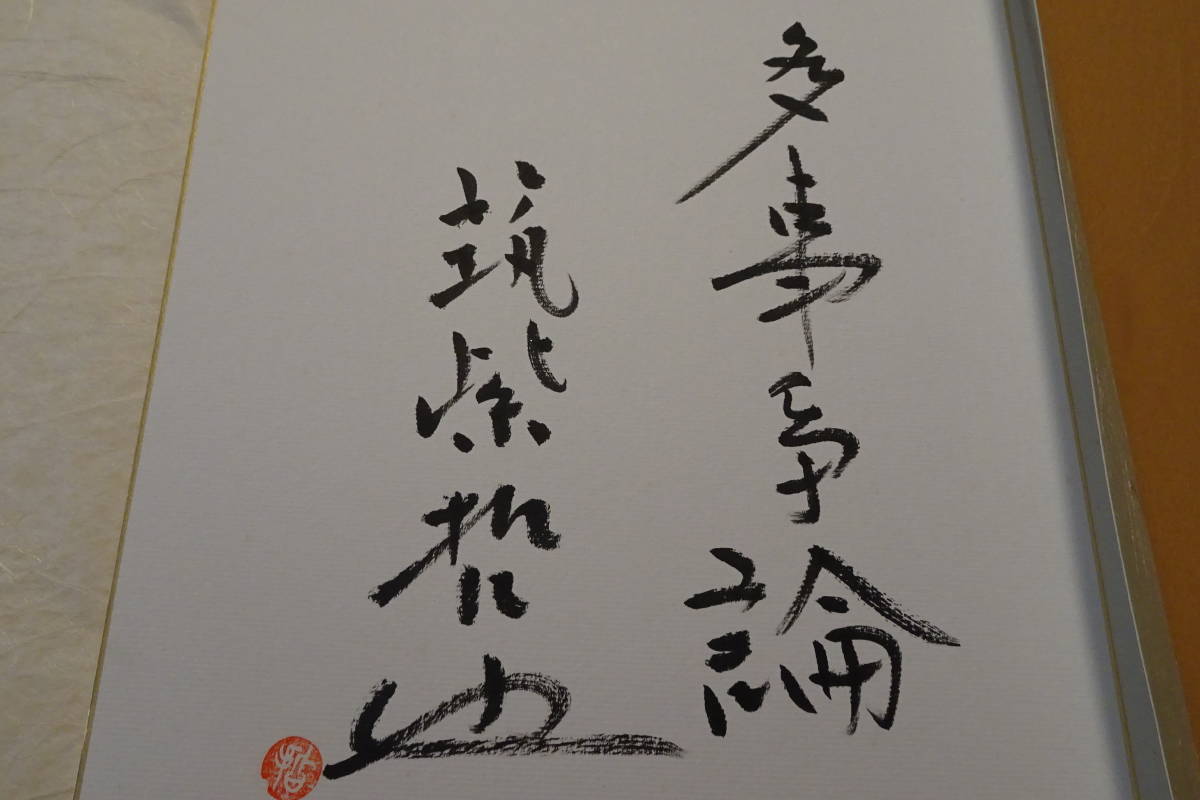 多事争論
筑紫哲也
哲